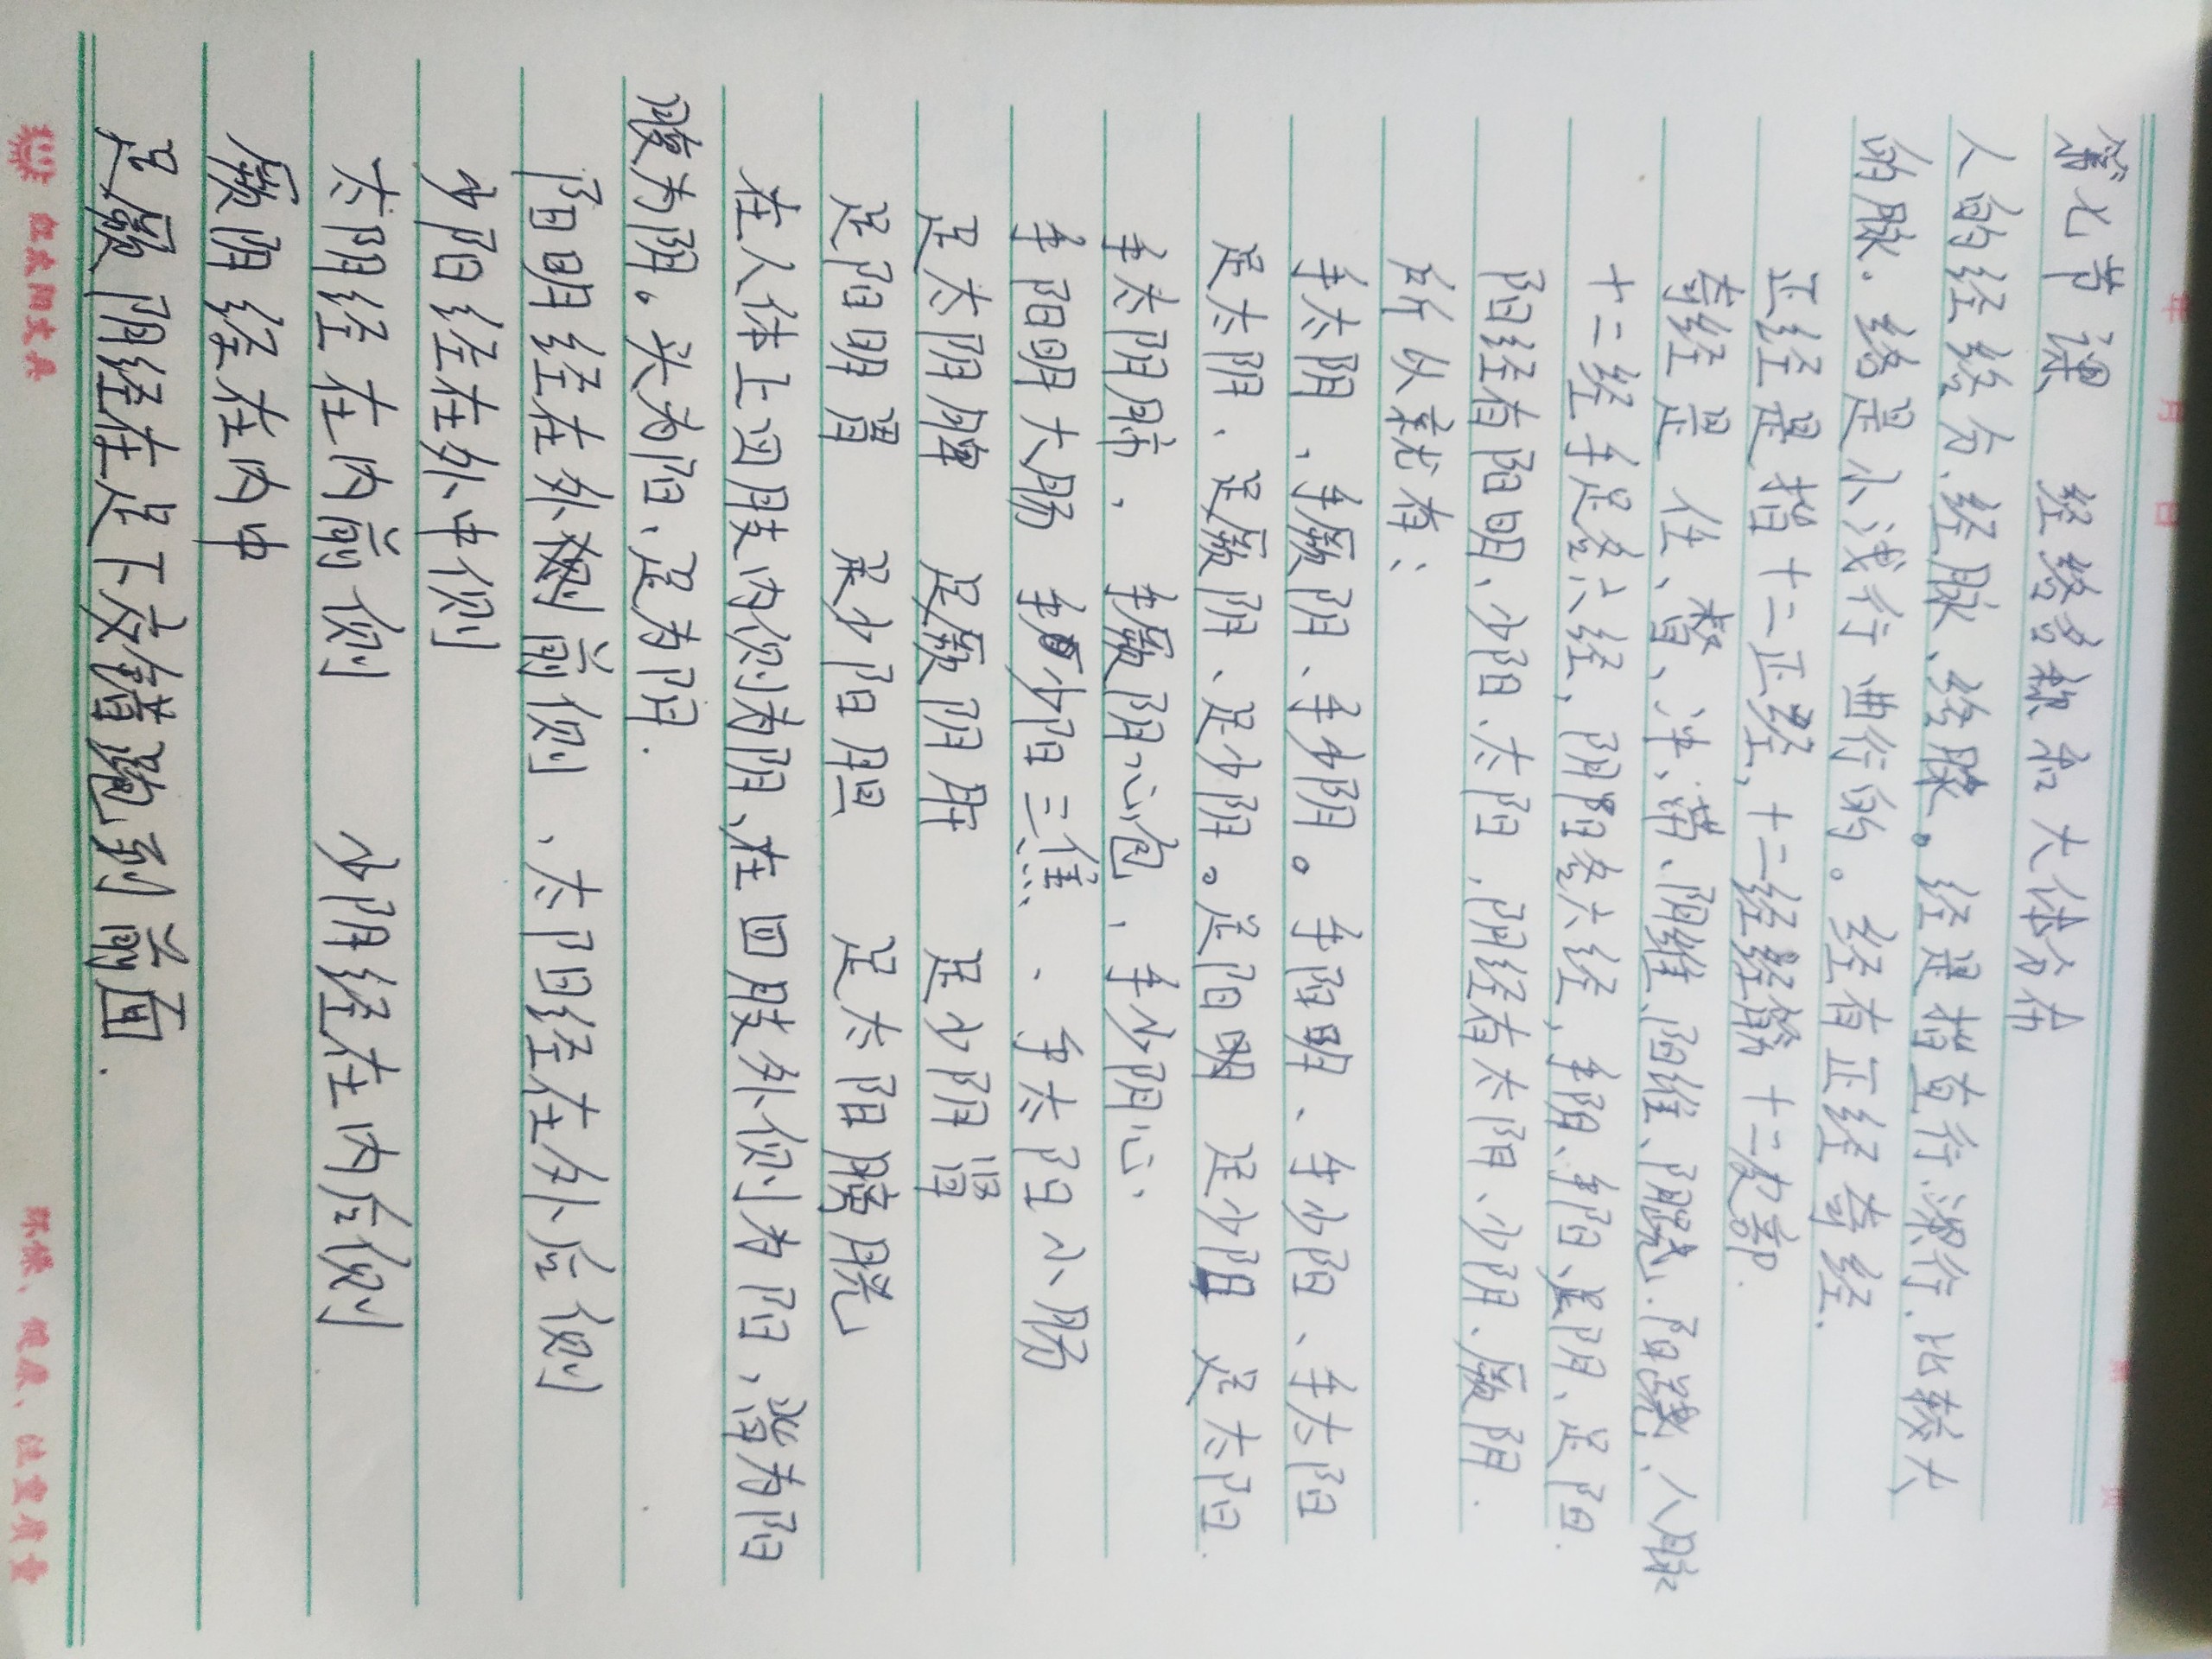 年 月 日
第七节课 经络名称和大体分布
人的经络分、经脉、络脉。经是指直行深行、比较大
的脉.络是小浅行曲行的。经有正经奇经.
正经是指十二正经,十二经经筋十二皮部.
奇经是任、督、冲、带、阴维、阳维、阴蹺.阳蹺、八脉
十二经手足各六经,阴阳各六经,手阴、手阳、足阴、足阳.
阳经有阳明、少阳、太阳.阴经有太阴、少阴、厥阴.
所以就有:
手太阴、手厥阴、手少阴。手阳明、手少阳、手太阳
足太阴、足厥阴、足少阴。足阳明 足少阳 足太阳.
手太阴肺、手厥阴心包、手少阴心、
手阳明大肠 手少阳三焦、手太阳小肠
足太阴脾 足厥阴肝 足少阴肾
足阳明胃 足少阳胆 足太阳膀胱
在人体上四肢内侧为阴、在四肢外侧为阳、背为阳
腹为阴。头为阳、足为阴.
阳明经在外前侧、太阳经在外后侧
少阳经在外中侧
太阴经在内前侧 少阴经在内后侧
厥阴经在内中
足厥阴经在足下交错跑到前面.
红太阳文具 环保、健康、注重质量